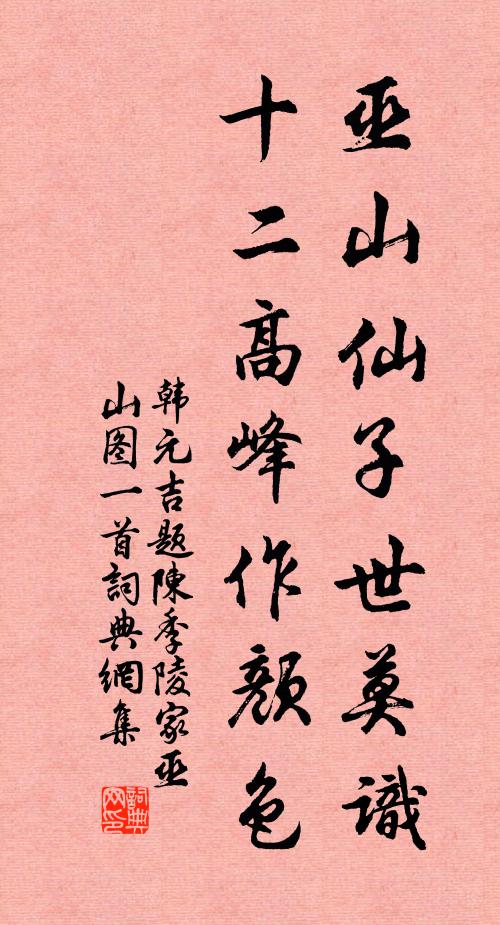 巫山仙子世莫識
十二高峰作顔色
韩元吉題陳季陵家巫
山图一首詞典網集
詞典
网印